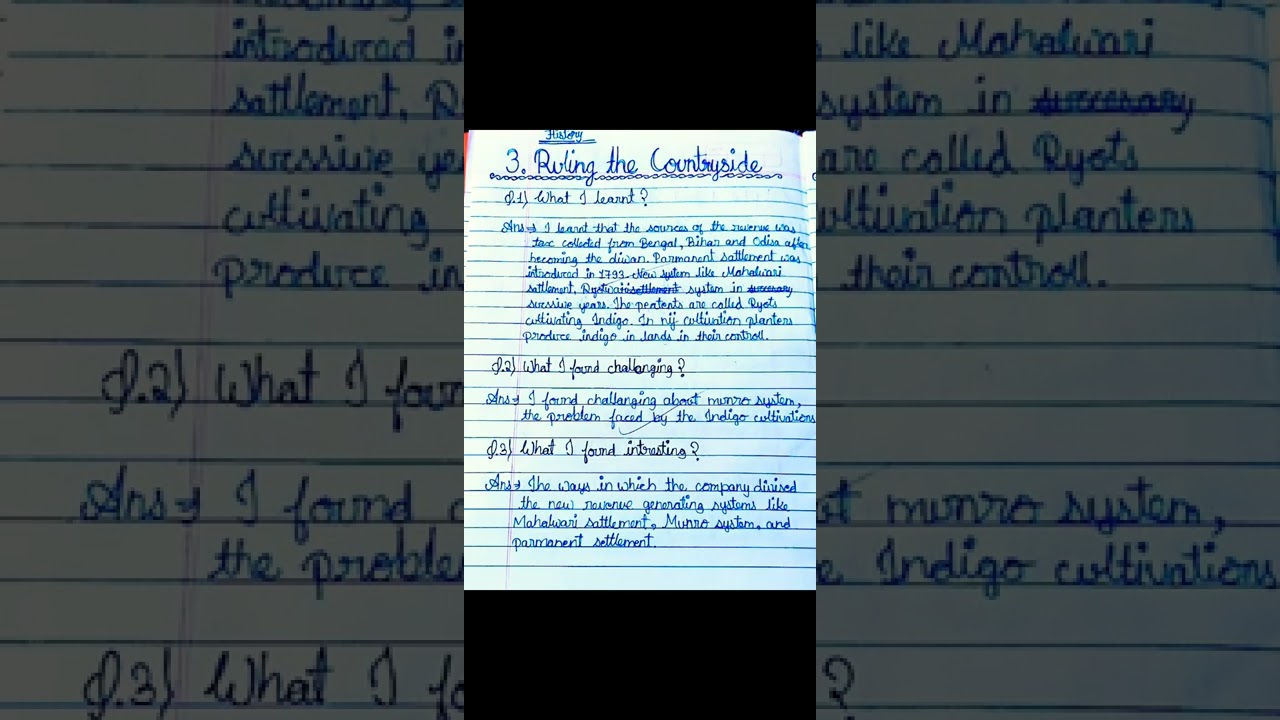 History
3. Ruling the Countryside
Q.1) What I learnt?
Ans→ I learnt that the sources of the revenue was
tax collected from Bengal, Bihar and Odisa after
becoming the diwan. Parmanent sattlement was
introduced in 1793. New system like Mahalwari
sattlement, Ryotwari settlement system in
sucssive years. The peatents are called Ryots
cultivating Indigo. In nij cultivation planters
produce indigo in lands in their controll.
Q.2) What I found challanging?
Ans→ I found challanging about munro system,
the problem faced by the Indigo cultivations
Q.3) What I found intresting?
Ans→ The ways in which the company divised
the new revenue generating systems like
Mahalwari sattlement, Munro system, and
parmanent settlement.